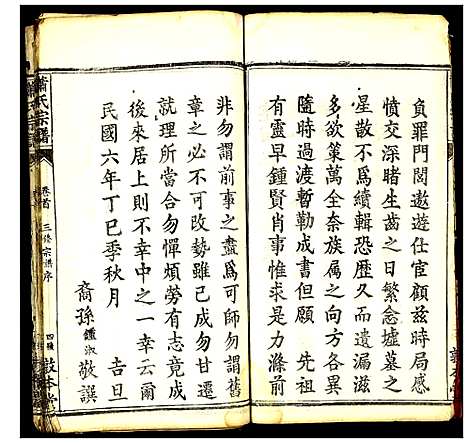 負罪門閭遨遊仕宦顧茲時局感
憤交深睹生齒之日繁愈墟墓之
星散不爲續輯恐歷久而遺漏滋
多欲策萬全奈族属之向方各異
隨時過渡暫勒成書但願　先祖
有靈早鍾賢肖事惟求是力滌前
非勿謂前事之盡爲可師勿謂舊
章之必不可改勢雖已成勿甘遷
就理所當合勿憚煩勞有志竟成
後來居上則不幸中之一幸云爾
民國六年丁巳季秋月　吉旦
裔孫鍾淑敬譔
蕭氏宗譜
卷首
三修宗譜序
四
敦本堂